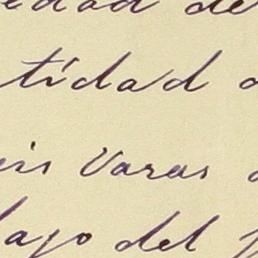 edad de
tidad
is Varas
lajo del